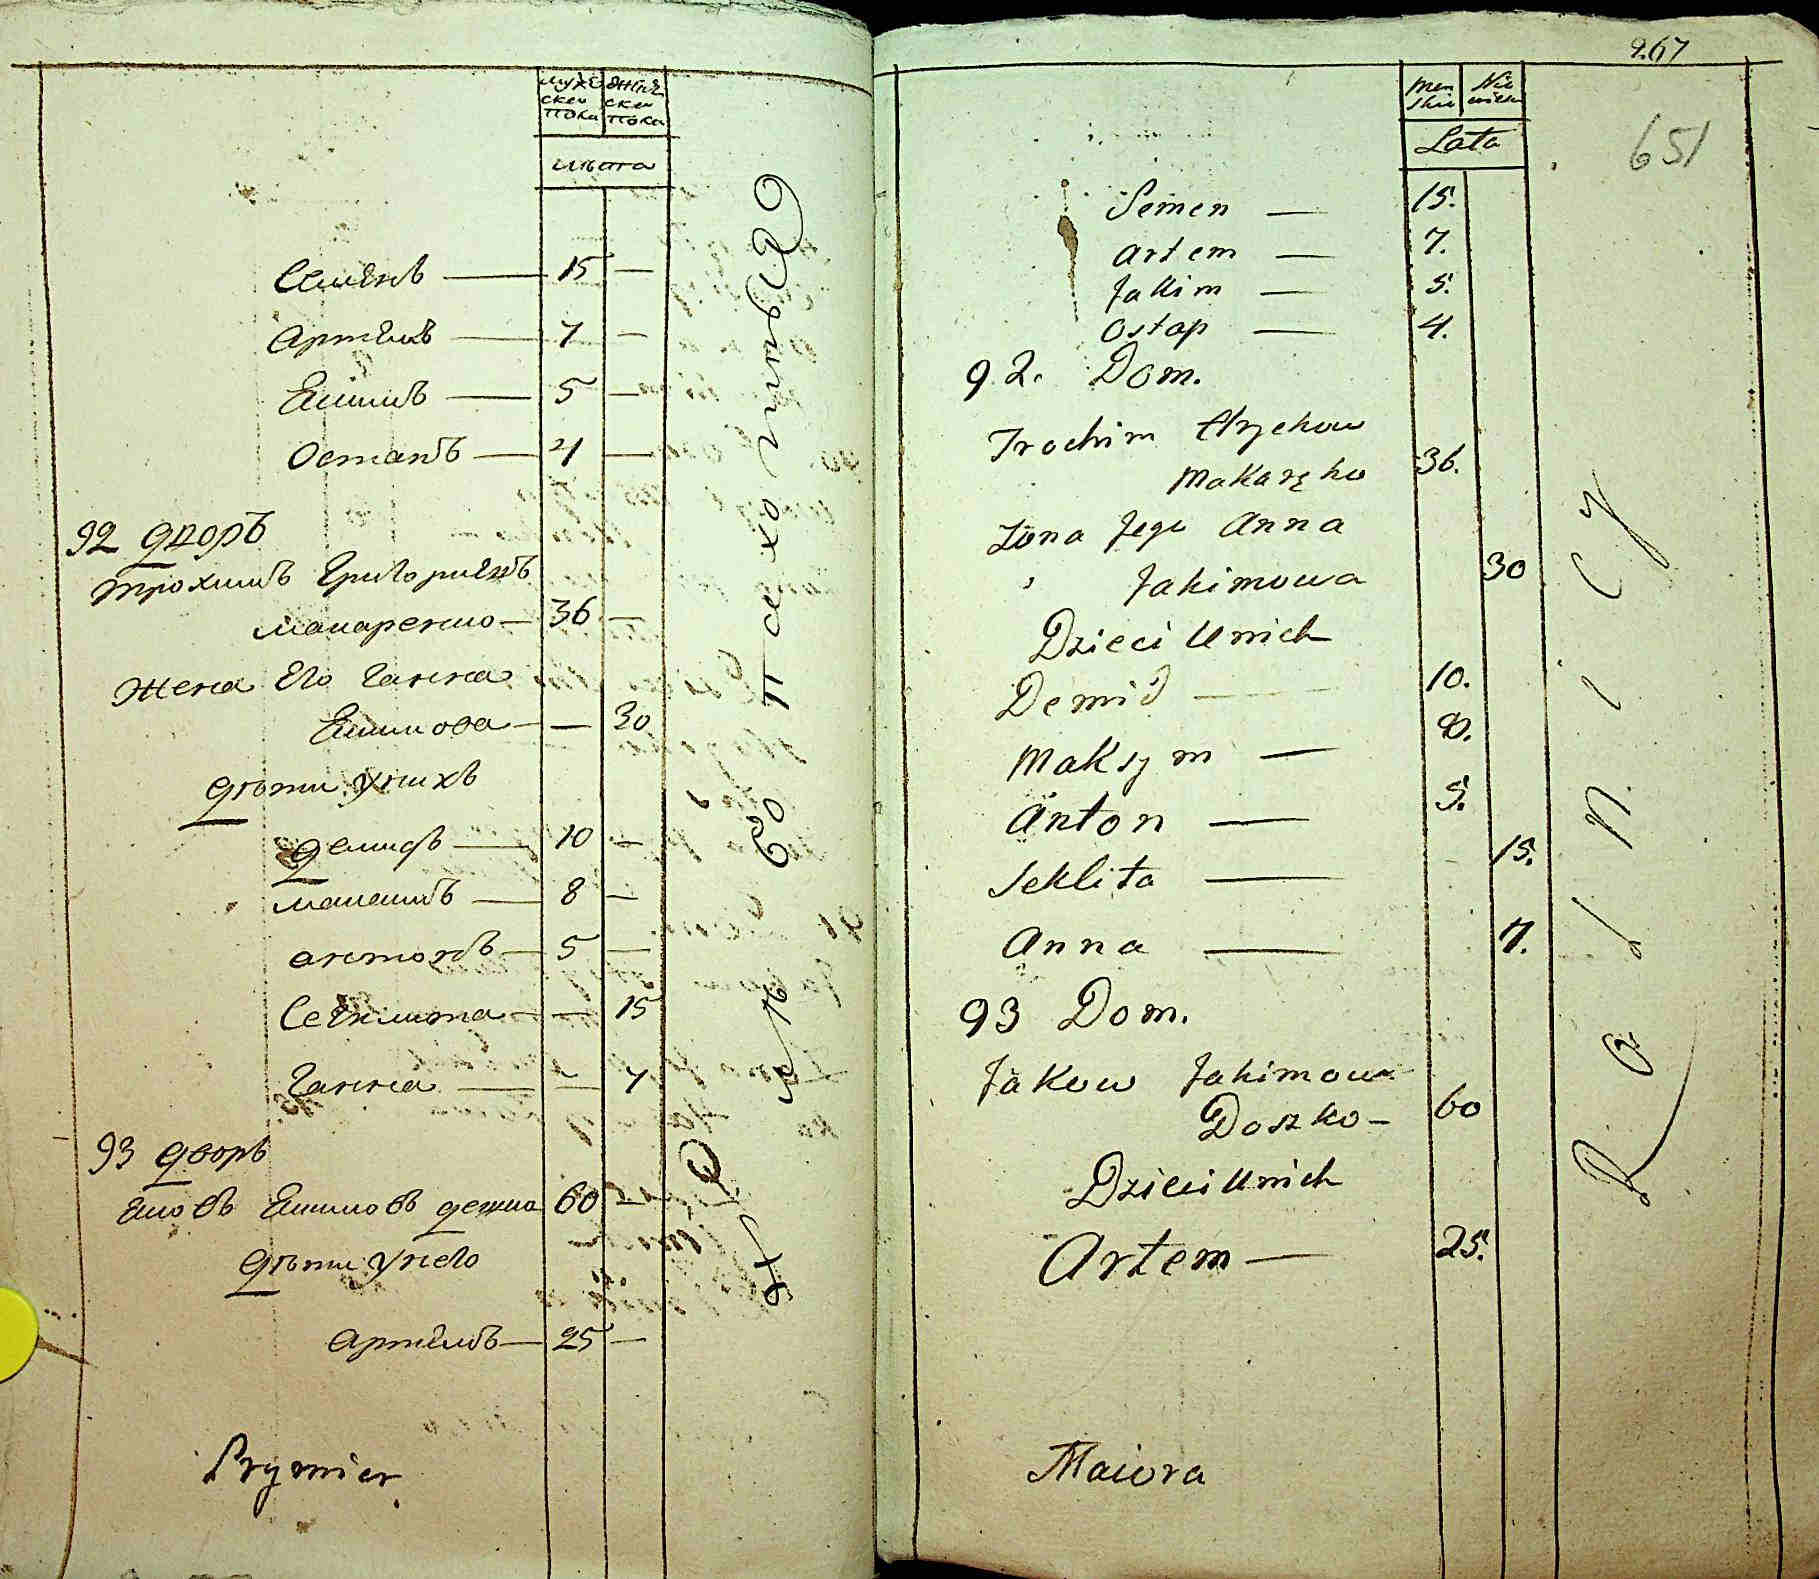 муже
ски
пола
женс
ски
пола
лѣта
Семенъ — 15 —
Артемъ — 7 —
Екимъ — 5 —
Остапъ — 4 —
92 дворъ
Трохимъ Григориевъ
Макаренко — 36 —
Жена его Ганна
Екимова — — 30
дѣти у нихъ
Демидъ — 10 —
Макашмъ — 8 —
антонъ — 5 —
Секлита — — 15
Ганна — — 7
93 дворъ
Яковъ Екимовъ дешко 60 —
дѣти у него
Артемъ — 25 —
Prymier
267
651
Men
skie
Nie
wieście
Lata
Semen — 15.
Artem — 7.
Jakim — 5.
Ostap — 4.
92. Dom.
Trochim Hrychow
Makaręko 36.
Zona Jego Anna
Jakimowa 30
Dzieci Unich
Demid — 10.
Maksym — 8.
Anton — 5.
Seklita — 15.
Anna — 7.
93 Dom.
Jakow Jakimow
Doszko — 60
Dzieci Unich
Artem — 25.
Maiora